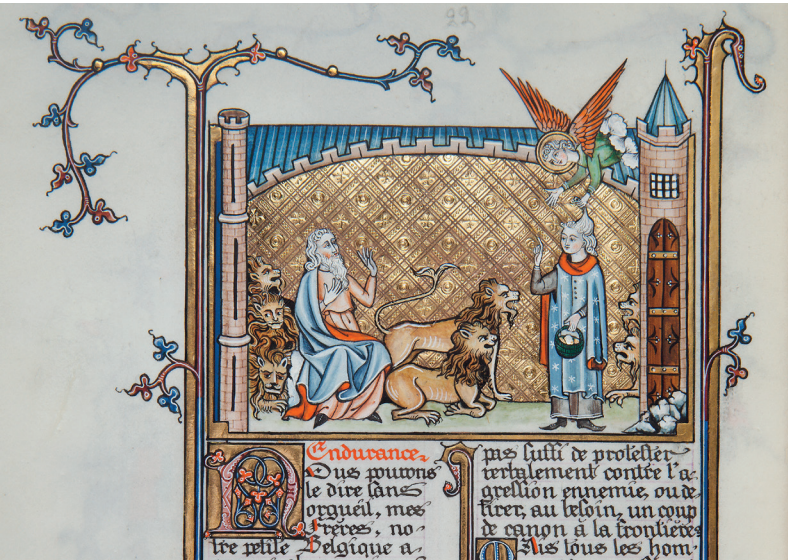 Endurance.
NOus pouvons
le dire sans
orgueil, mes
Frères, no-
tre petite Belgique a
pas suffi de protester
verbalement contre l'a-
gression ennemie, ou de
tirer, au besoin, un coup
de canon à la frontière.
MAis tous les hom-